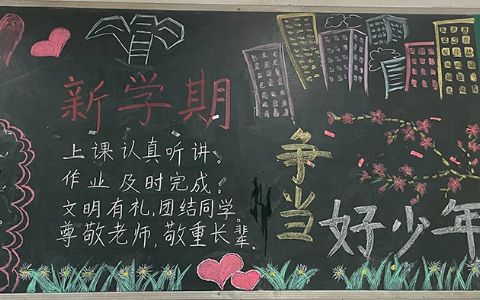 新学期
上课认真听讲。
作业及时完成。
文明有礼,团结同学。
尊敬老师,敬重长辈.
争当
好少年